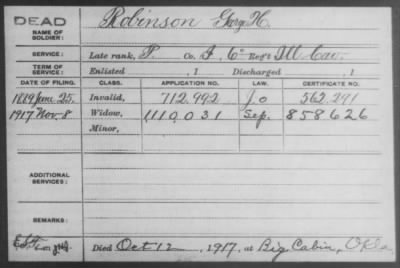 DEAD
NAME OF SOLDIER:
Robinson George H.
SERVICE:
Late rank, P Co. I, 6" Reg't Ill Cav.
TERM OF SERVICE:
Enlisted , 1 Discharged , 1
DATE OF FILING. CLASS. APPLICATION NO. LAW. CERTIFICATE NO.
1889 June 25. Invalid, 712,992 J.O 562,291
1917 Nov. 8 Widow, 1110031 Sep. 858626
Minor,
ADDITIONAL SERVICES:
REMARKS:
Died Oct 12, 1917, at Big Cabin, Okla